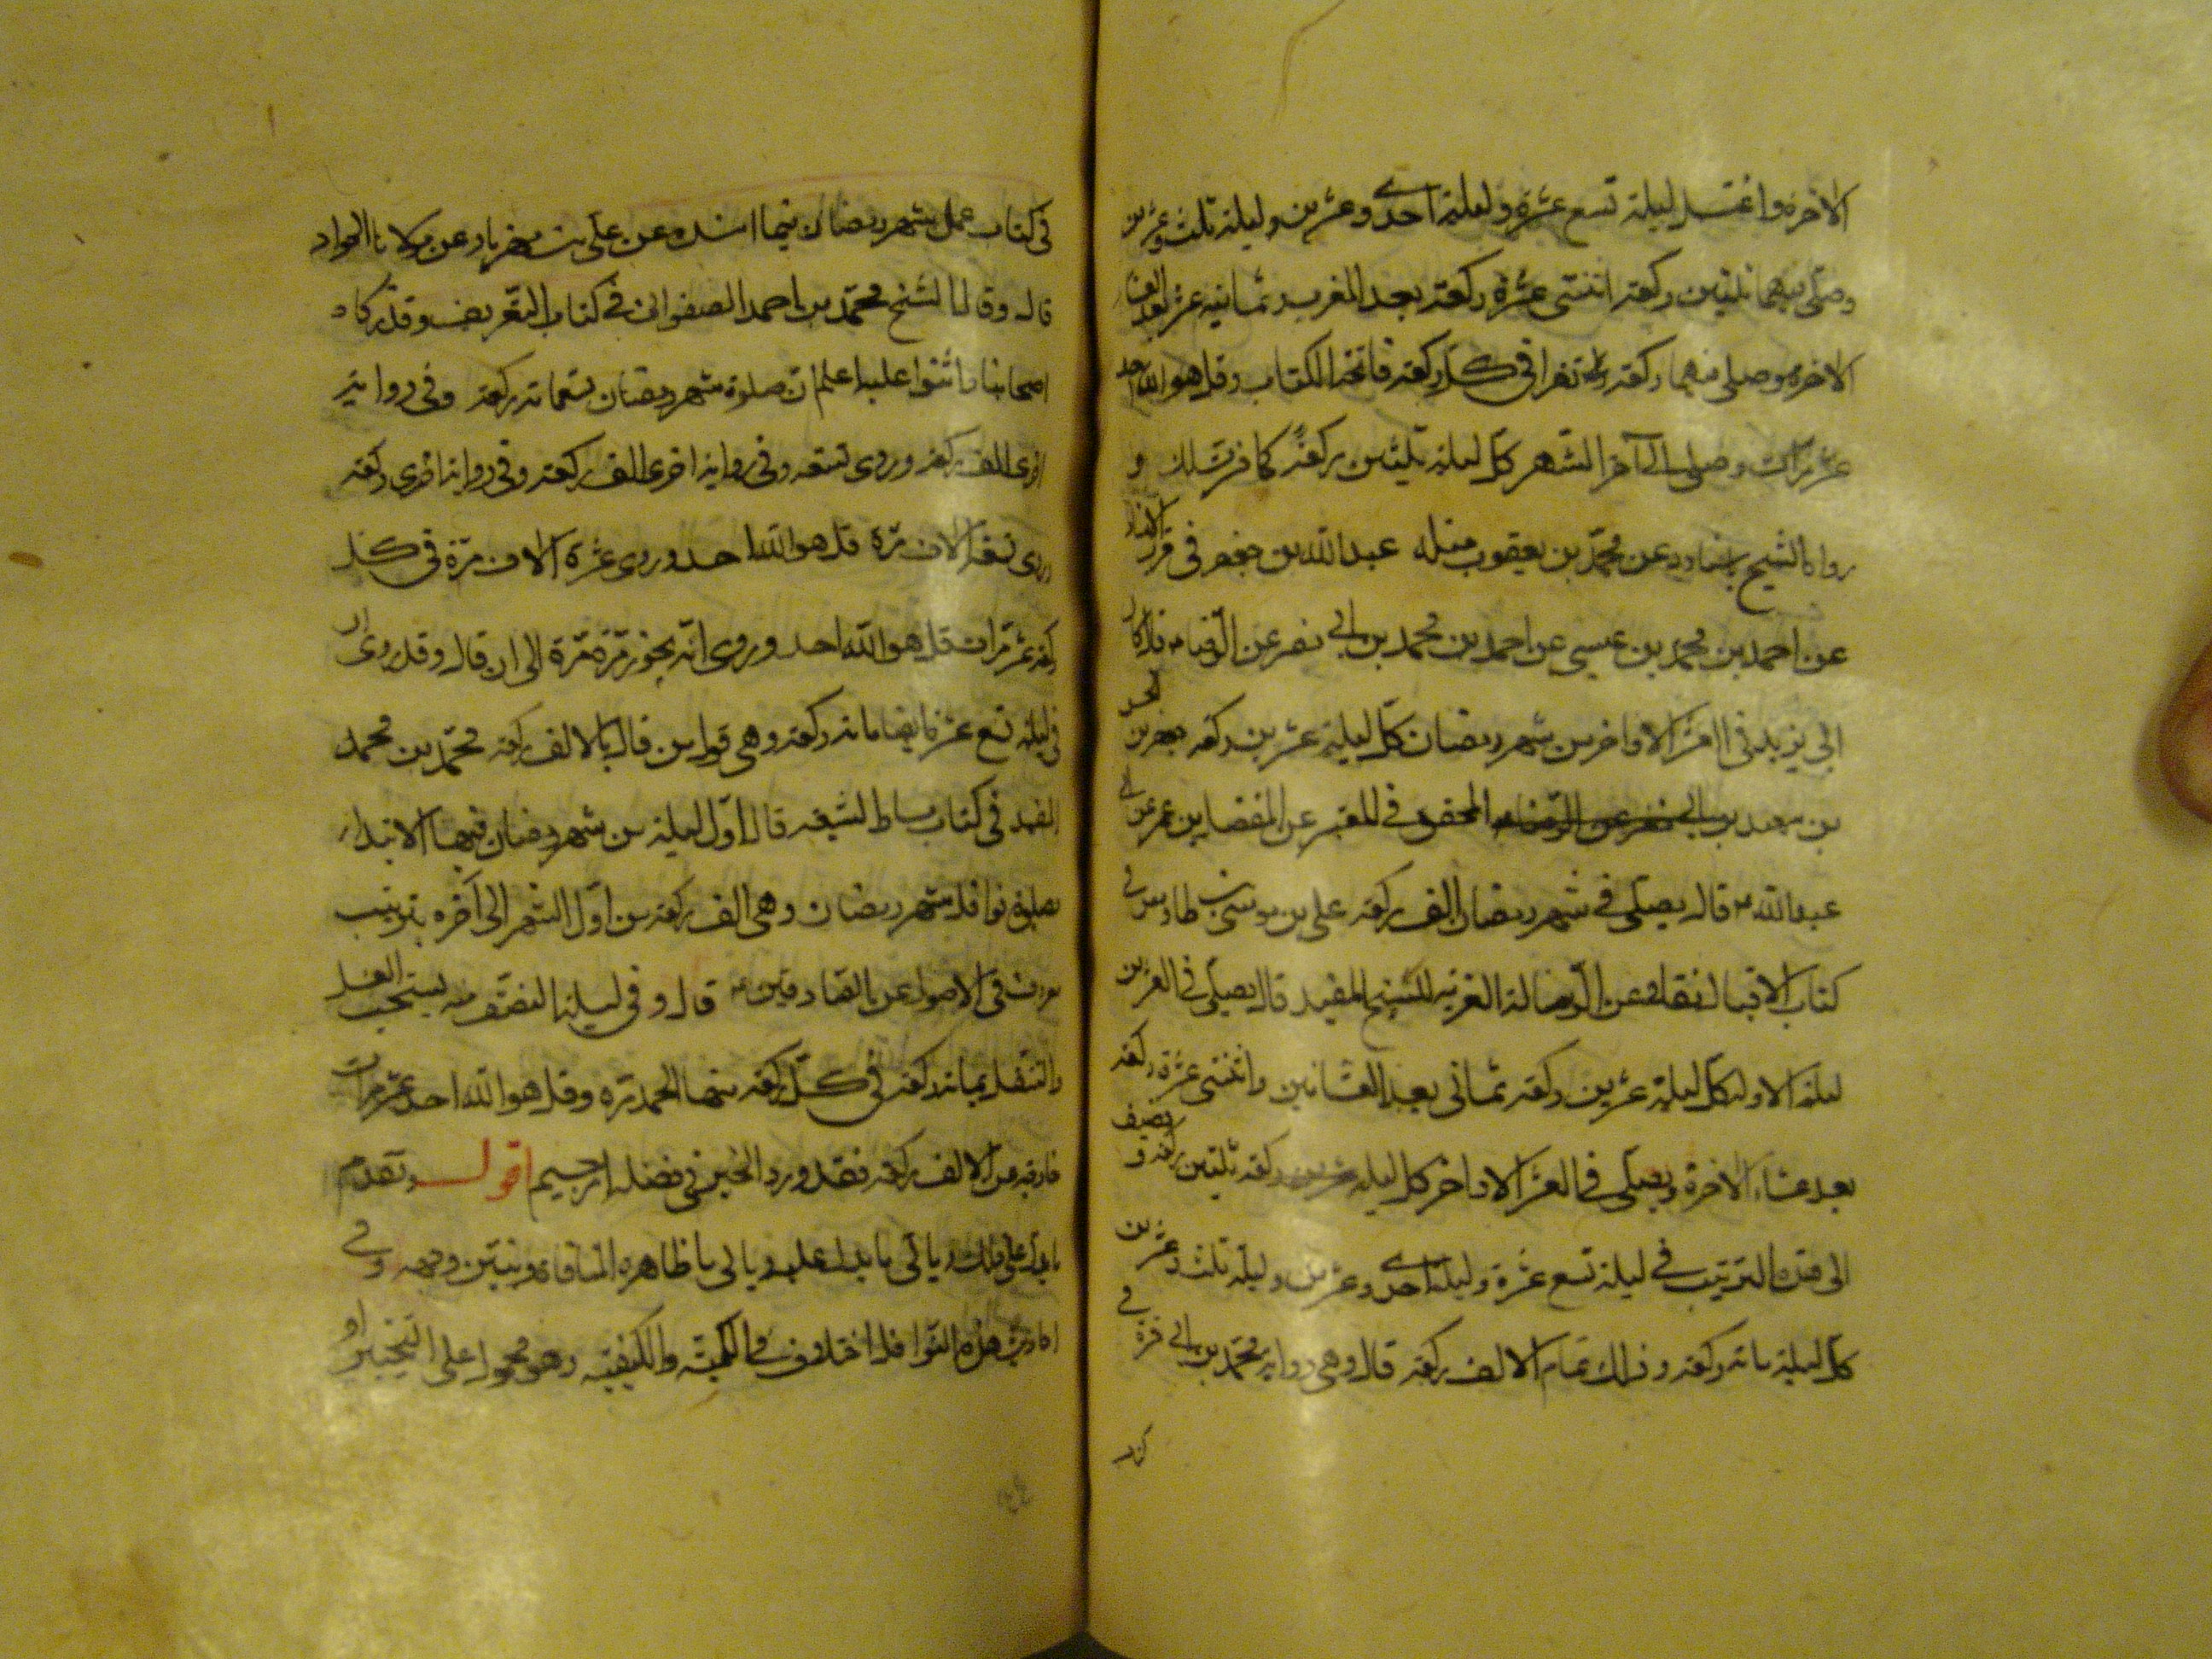 الاخرة واغتسل ليلة تسع عشرة وليلة احدى وعشرين وليلة ثلث وعشرين
وصلى فيهما ثلثين ركعة اثنتى عشرة ركعة بعد المغرب ثمانية عشر بعد العشاء
الاخرة وصلى فيهما مائة ركعة تقرا فى كل ركعة فاتحة الكتاب وقل هو الله احد
عشر مرات وصلى الى آخر الشهر كل ليلة ثلثين ركعة كما فسرت لك و
رواه الشيخ باسناده عن محمد بن يعقوب مثله عبد الله بن جعفر فى قرب الاسناد
عن احمد بن محمد بن عيسى عن احمد بن محمد بن ابي نصر عن الرضا ع قال كان
ابي يزيد فى العشر الاواخر من شهر رمضان كل ليلة عشرين ركعة جعفر بن الحسن
بن سعيد المحقق فى المعتبر عن المفضل بن عمر عن ابي
عبد الله ع قال يصلى فى شهر رمضان الف ركعة على بن موسى بن طاوس فى
كتاب الاقبال نقلا عن الرسالة الغرية للشيخ المفيد قال يصلى فى العشرين
ليلة الاولى كل ليلة عشرين ركعة ثمانى بعد العشائين واثنتى عشرة ركعة
بعد عشاء الاخرة ويصلى فى العشر الاواخر كل ليلة ثلثين ركعة ويضيف
الى هذا الترتيب فى ليلة تسع عشرة وليلة احدى وعشرين وليلة ثلث وعشرين
كل ليلة مائة ركعة وذلك تمام الالف ركعة قال وهى رواية محمد بن ابي قرة فى
كتاب
فى كتاب عمل شهر رمضان فيما اسنده عن على بن مهزيار عن مولانا الجواد
قال وقال الشيخ محمد بن احمد الصفوانى فى كتاب التعريف وقد زكاه
اصحابنا واثنوا عليه اعلم ان صلوة شهر رمضان تسعمائة ركعة وفى رواية
اخرى الف ركعة وروى تسعة وفى رواية اخرى الف ركعة وفى رواية اخرى ركعة
وروى تسعة الاف مرة قل هو الله احد وروى عشرة الاف مرة فى كل
ركعة عشر مرات قل هو الله احد وروى انه يجوز مرة مرة الى ان قال وقد روى ان
فى ليلة تسع عشرة ايضا مائة ركعة وهى قول من قال بالالف ركعة محمد بن محمد
المفيد فى كتاب مسار الشيعة قال اول ليلة من شهر رمضان فيها الابتداء
بصلوة نوافل شهر رمضان وهى الف ركعة من اول الشهر الى آخره بترتيب
معروف فى الاصول عن الصادقين ع قال وفى ليلة النصف منه يستحب الغسل
والتنفل بمائة ركعة فى كل ركعة منها الحمد مرة وقل هو الله احد عشر مرات
خارجة عن الالف ركعة فقد ورد الخبر فى فضله امر جسيم اقول وتقدم
ما يدل على ذلك وياتى ما يدل عليه وياتى ما ظاهره المنافاة ونبين وجهه وفى
احاديث هذه النوافل اختلاف فى الكمية والكيفية وهو محمول على التخيير او